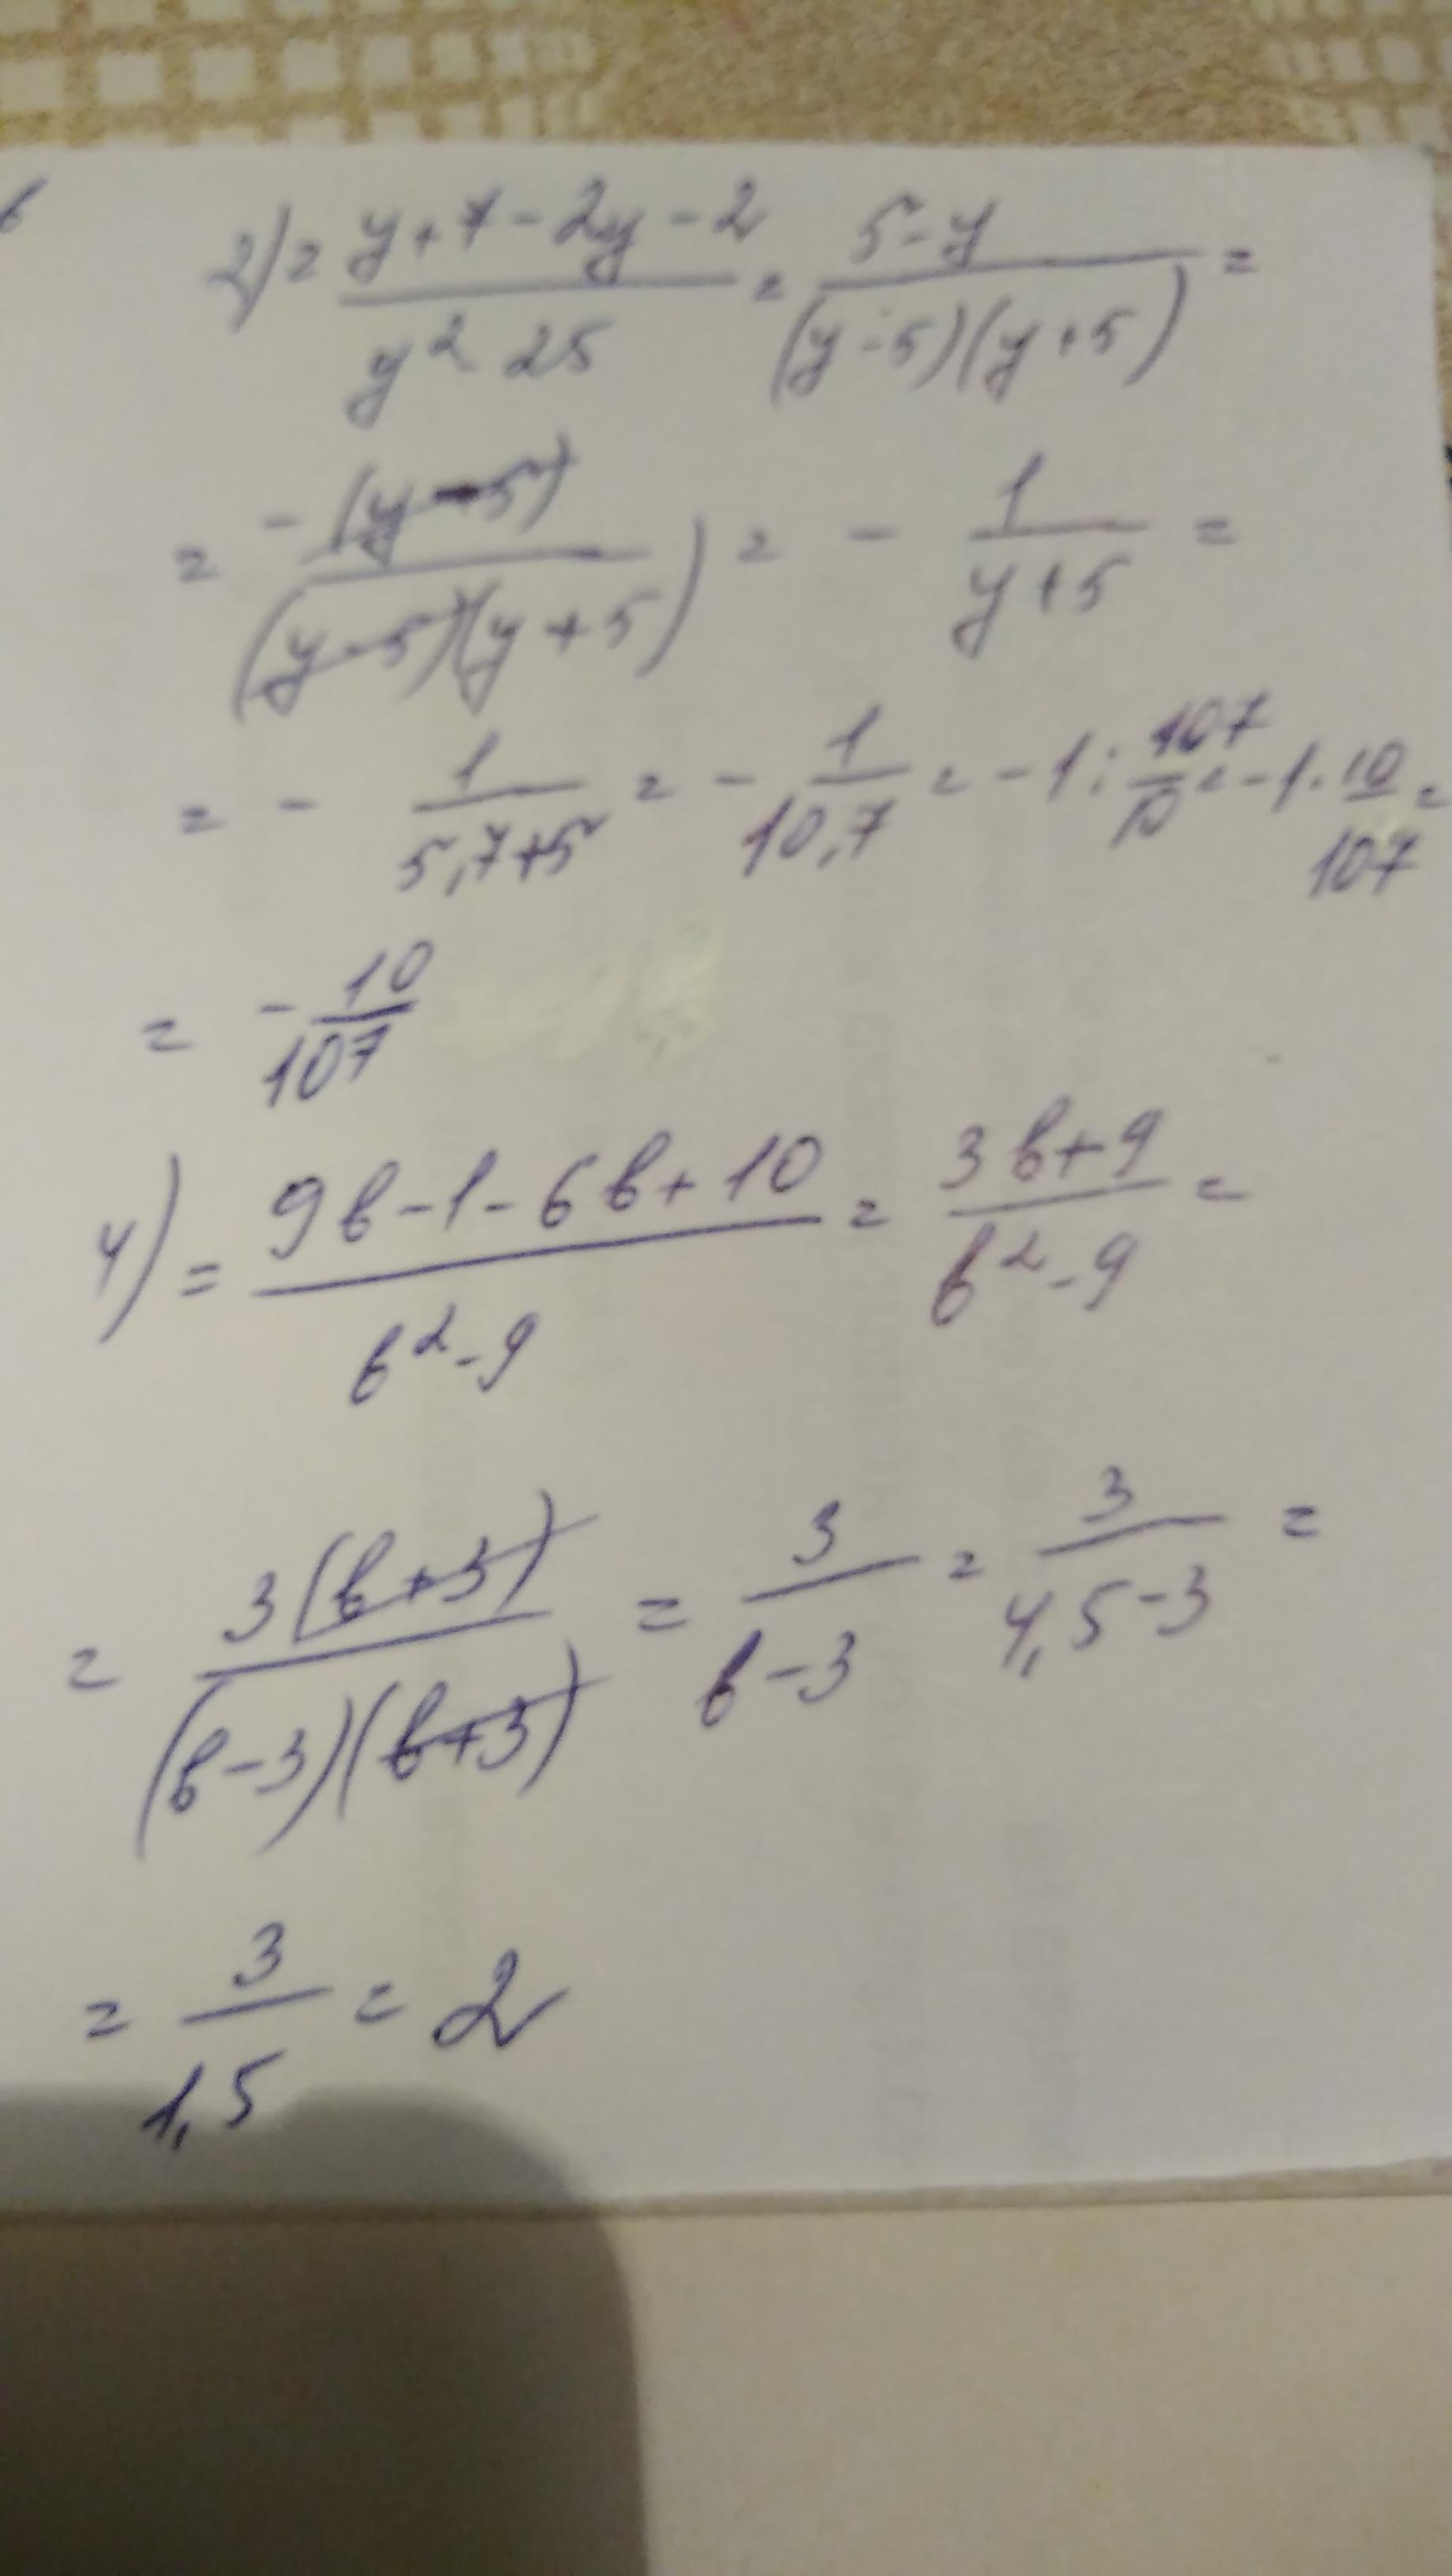 2) = (y+7-2y-2)/(y² 25) = (5-y)/((y-5)(y+5)) =
= -(y-5)/((y-5)(y+5)) = - 1/(y+5) =
= - 1/(5,7+5) = - 1/(10,7) = -1 : 107/10 = -1 · 10/107 =
= - 10/107
4) = (9b-1-6b+10)/(b²-9) = (3b+9)/(b²-9) =
= 3(b+3)/((b-3)(b+3)) = 3/(b-3) = 3/(4,5-3) =
= 3/(1,5) = 2